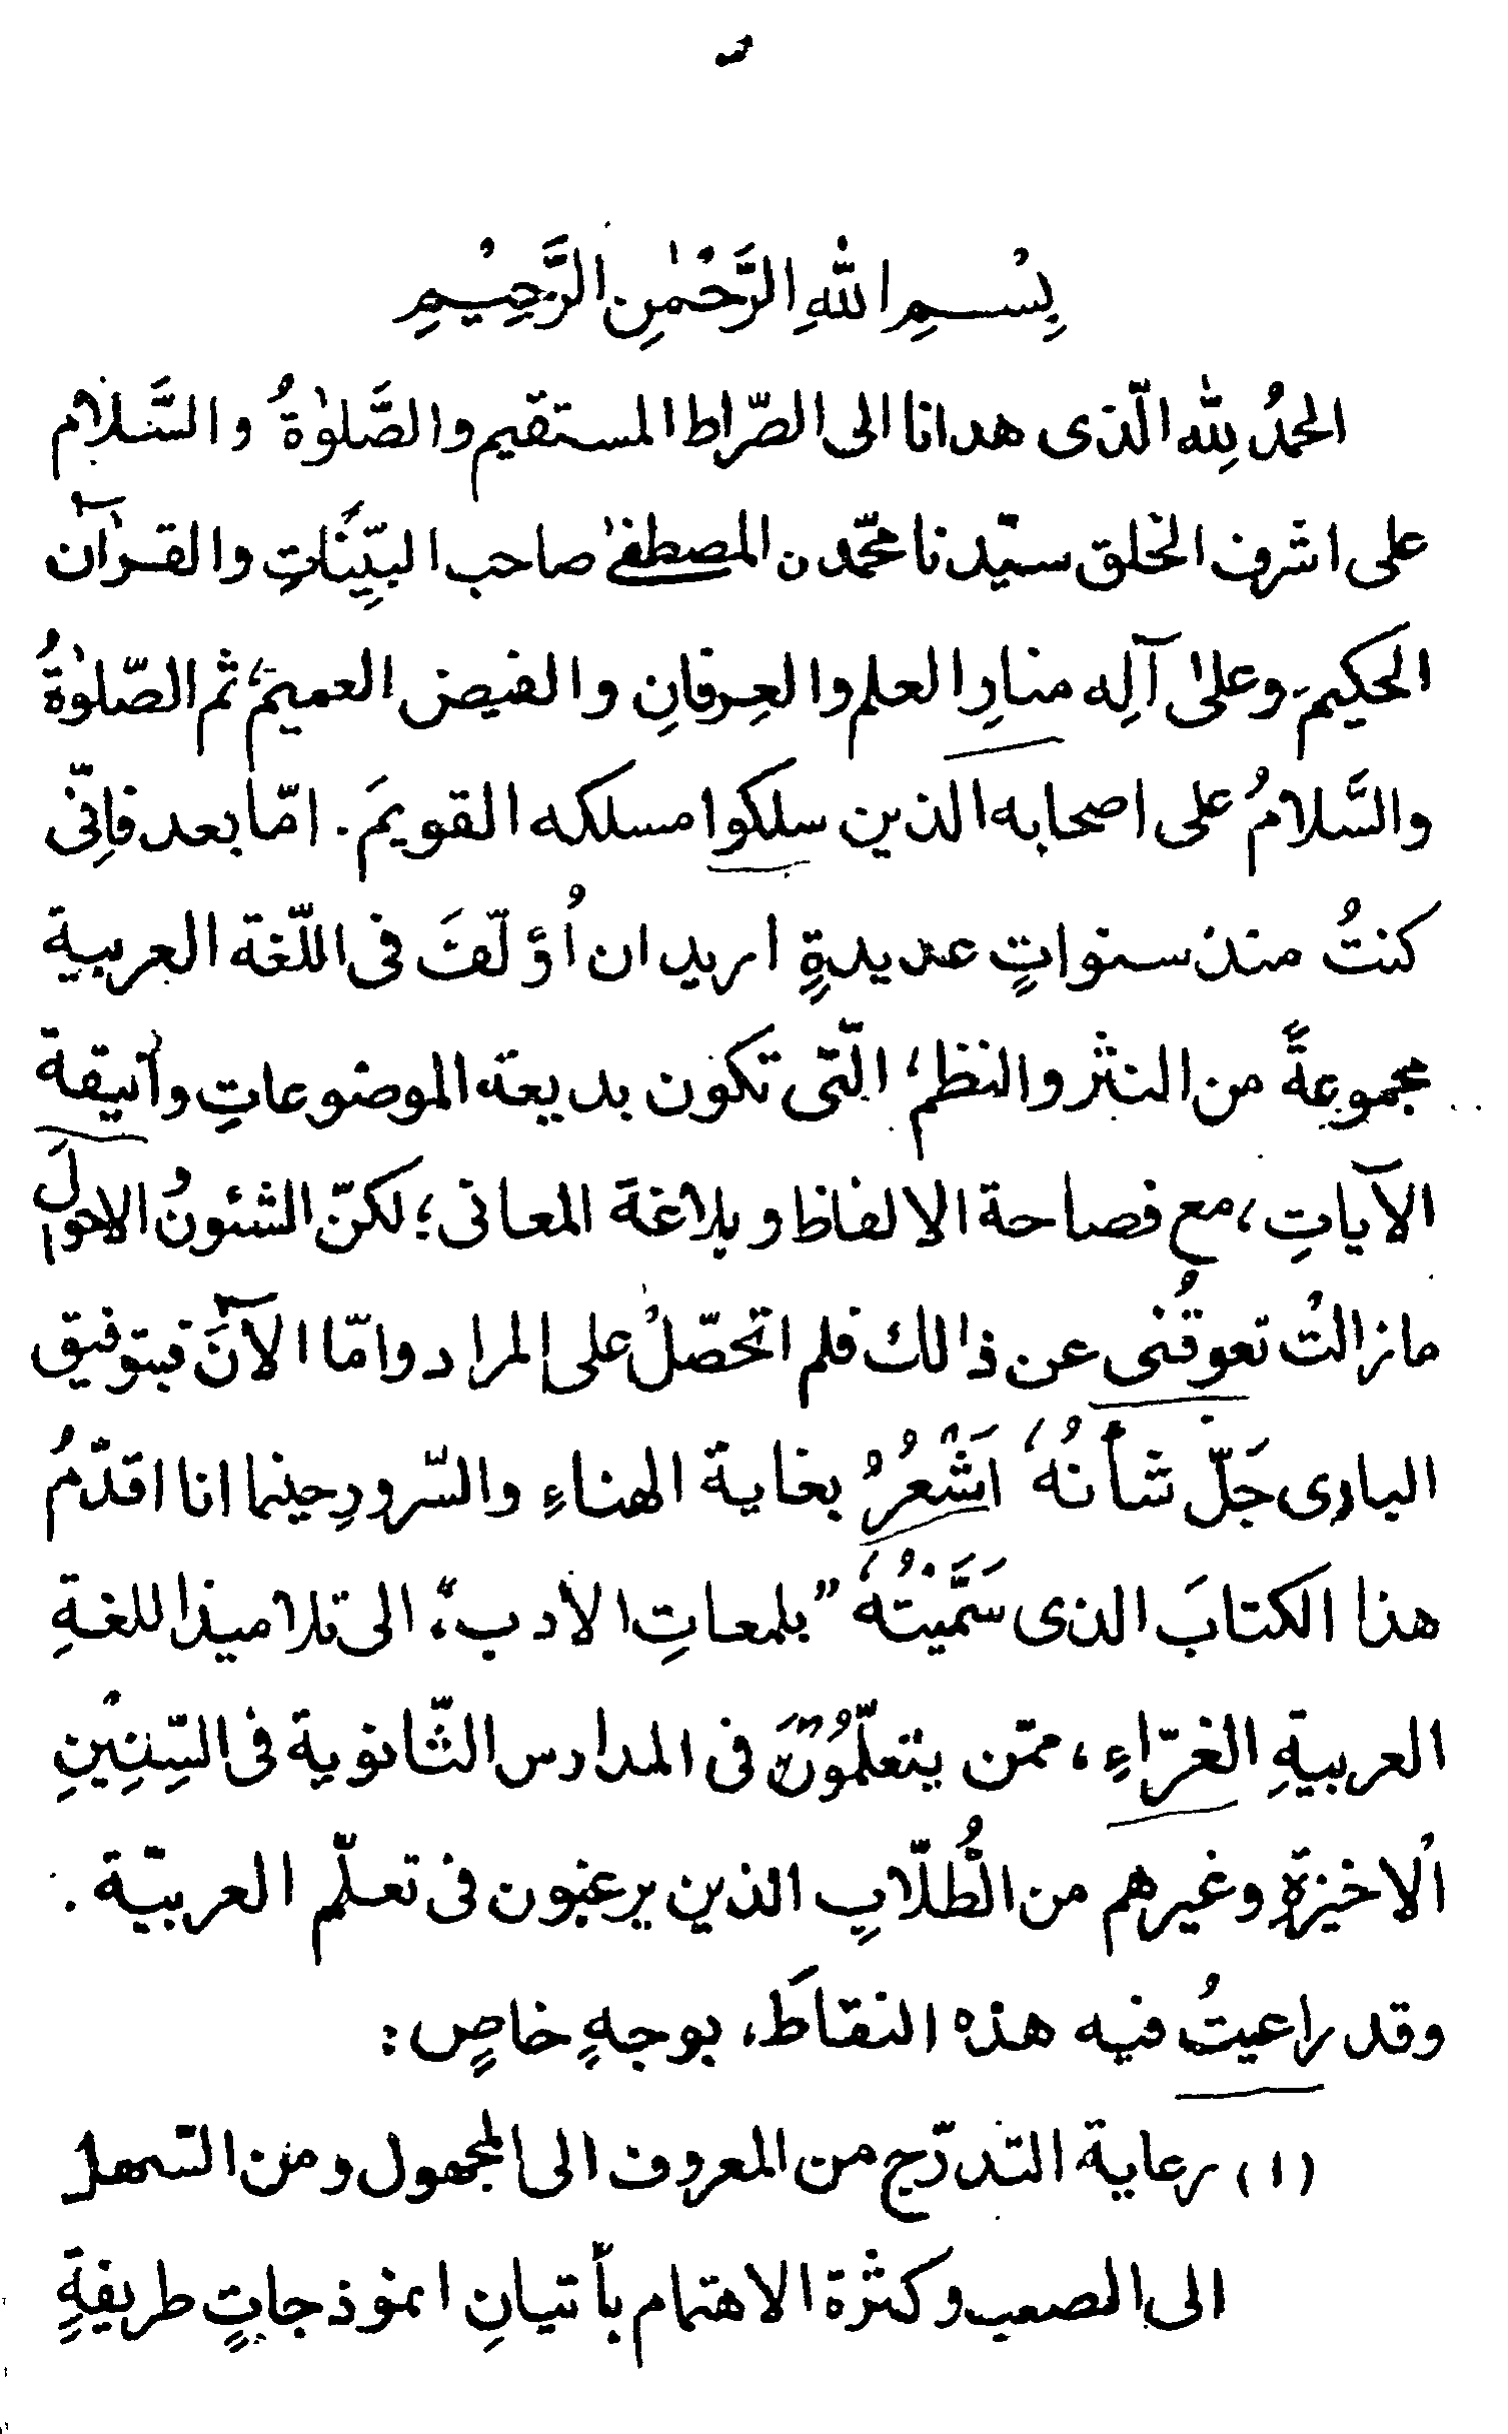 بِسْمِ اللّٰهِ الرَّحْمٰنِ الرَّحِيْمِ
الحمدُ لِلّٰه الّذى هدانا الى الصّراط المستقيم والصَّلوٰةُ والسَّلام
على اشرف الخلق سيّدنا محمّد ن المصطفىٰ صاحب البيِّنَاتِ والقرآن
الحكيم، وعلىٰ آلِه منارِ العلم والعِرفانِ والفيض العميم، ثم الصّلوٰةُ
والسَّلامُ على اصحابه الذين سلكوا مسلكه القويمَ. امّا بعد فاِنّى
كنتُ منذ سنواتٍ عديدةٍ اريد ان اُؤلّفَ فى اللّغة العربية
مجموعةً من النثر والنظم، الّتى تكون بديعة الموضوعاتِ وأنيقة
الآياتِ، مع فصاحة الالفاظ وبلاغة المعانى؛ لكنّ الشئونُ الاحوالَ
مازالتْ تعوقُنى عن ذالك فلم اتحصّلْ على المراد وامّا الآنَ فبتوفيق
البارى جَلّ شأنُهٗ اَشْعُرُ بغاية الهناءِ والسّرورِ حينما انا اقدّمُ
هذا الكتابَ الذى سَمَّيْتُهٗ "بلمعاتِ الأدب"، الى تلاميذ اللغةِ
العربيةِ الغرّاءِ، ممّن يتعلّمُوْنَ فى المدارس الثّانوية فى السِّنِيْنِ
الاخيرةِ وغيرهم من الطُّلّابِ الذين يرغبون فى تعلّم العربيّة.
وقد راعيتُ فيه هذه النقاطَ، بوجهٍ خاصٍ:
(١) رعاية التدرّج من المعروف الى المجهول ومن السّهل
الى الصعب وكثرة الاهتمام بأتيانِ انموذجاتٍ طريفةٍ